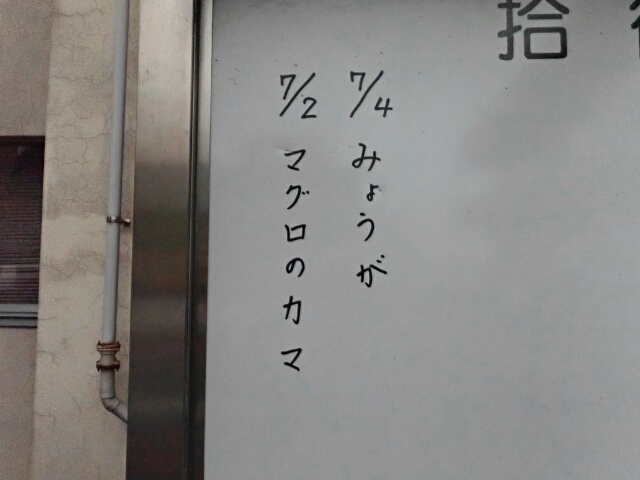 拾
7/4 みょうが
7/2 マグロのカマ